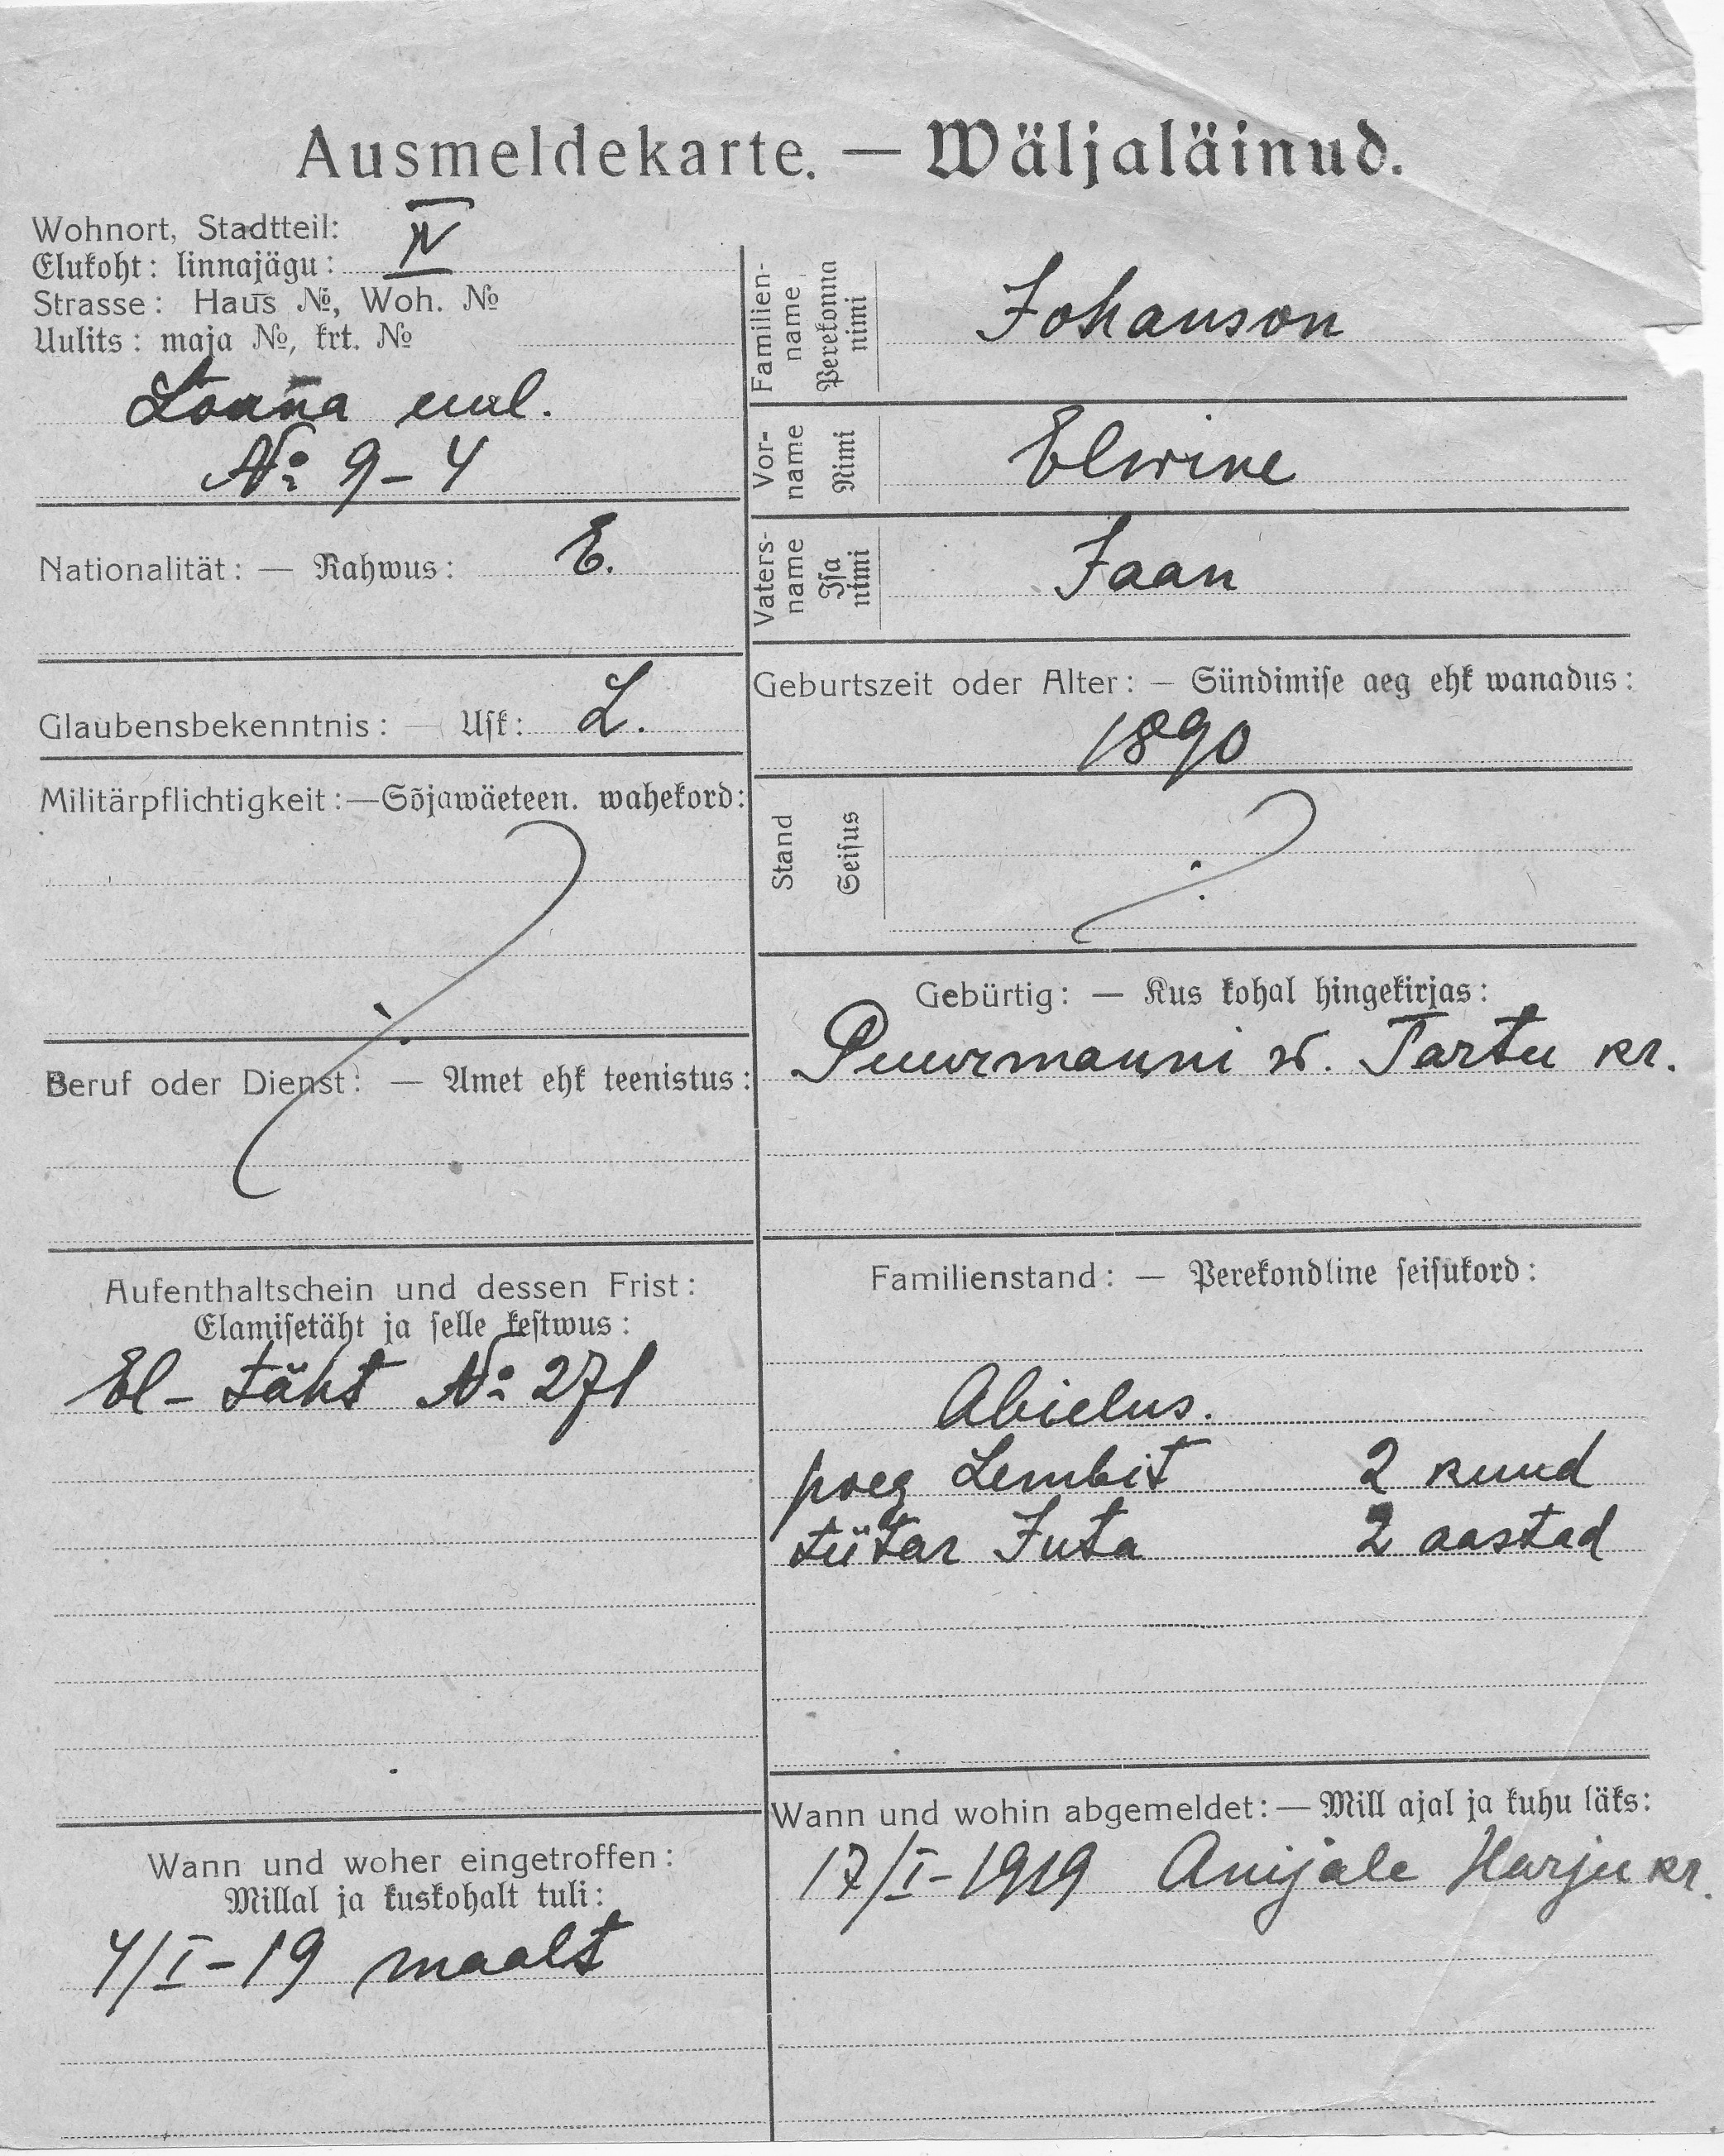 Ausmeldekarte. — Wäljaläinud.
Wohnort, Stadtteil:
Elukoht: linnajägu: IV
Strasse: Haus №, Woh. №
Uulits: maja №, krt. №
№ 9-4
Nationalität: — Rahwus: E.
Glaubensbekenntnis: — Usk: L.
Militärpflichtigkeit: — Sõjawäeteen. wahekord:
Beruf oder Dienst: — Amet ehk teenistus:
Aufenthaltschein und dessen Frist:
Elamisetäht ja selle kestwus:
El-täht № 271
Wann und woher eingetroffen:
Millal ja kuskohalt tuli:
4/I-19 maalt
Familien-name Perekonna nimi Johanson
Vor-name Nimi Elwine
Vaters-name Isa nimi Jaan
Geburtszeit oder Alter: — Sündimise aeg ehk wanadus:
1890
Stand Seisus
Gebürtig: — Kus kohal hingekirjas:
Puurmanni w. Tartu kr.
Familienstand: — Perekondline seisukord:
Abielus.
poeg Lembit 2 kuud
tütar Juta 2 aastad
Wann und wohin abgemeldet: — Mill ajal ja kuhu läks:
17/I-1919 Anijale Harju kr.